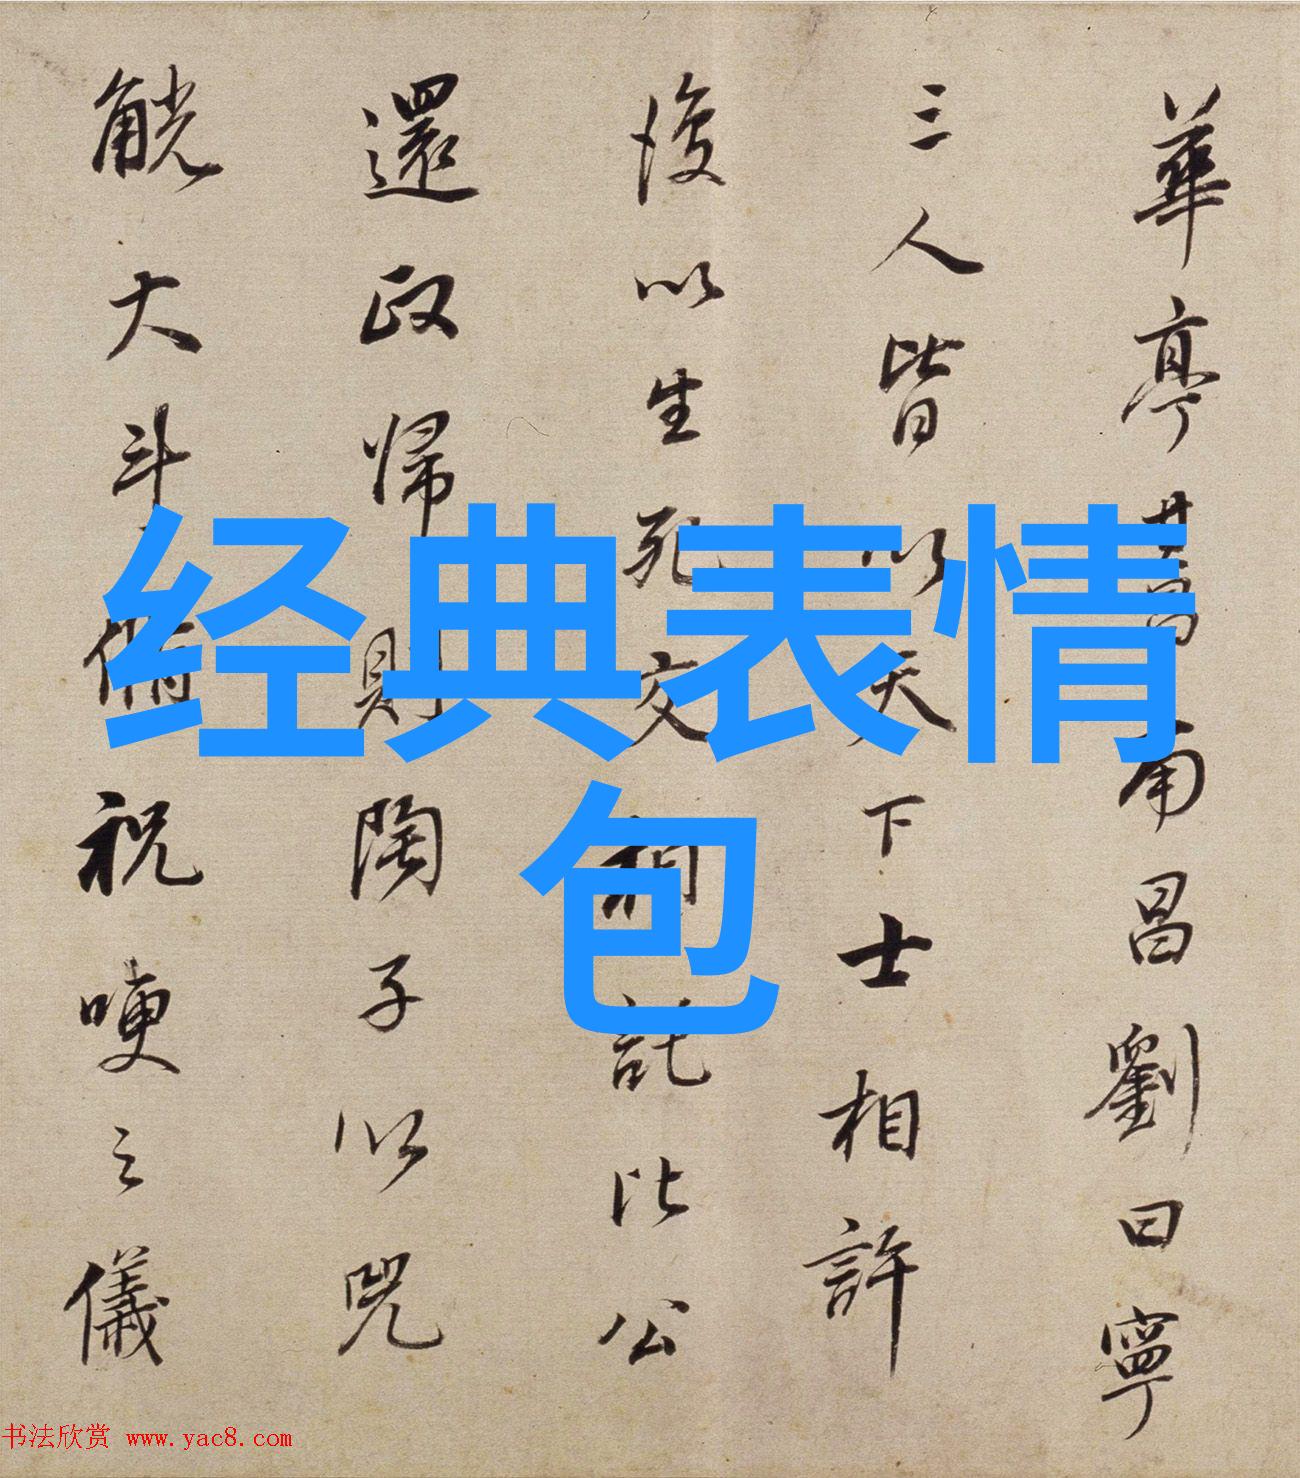 华亭
南昌劉曰寧
三人皆以天下士相許
後以生死交相託比公
還政歸則陶子以兕
觥大斗侑祝哽之儀
经典表情
包
书法欣赏 www.yac8.com